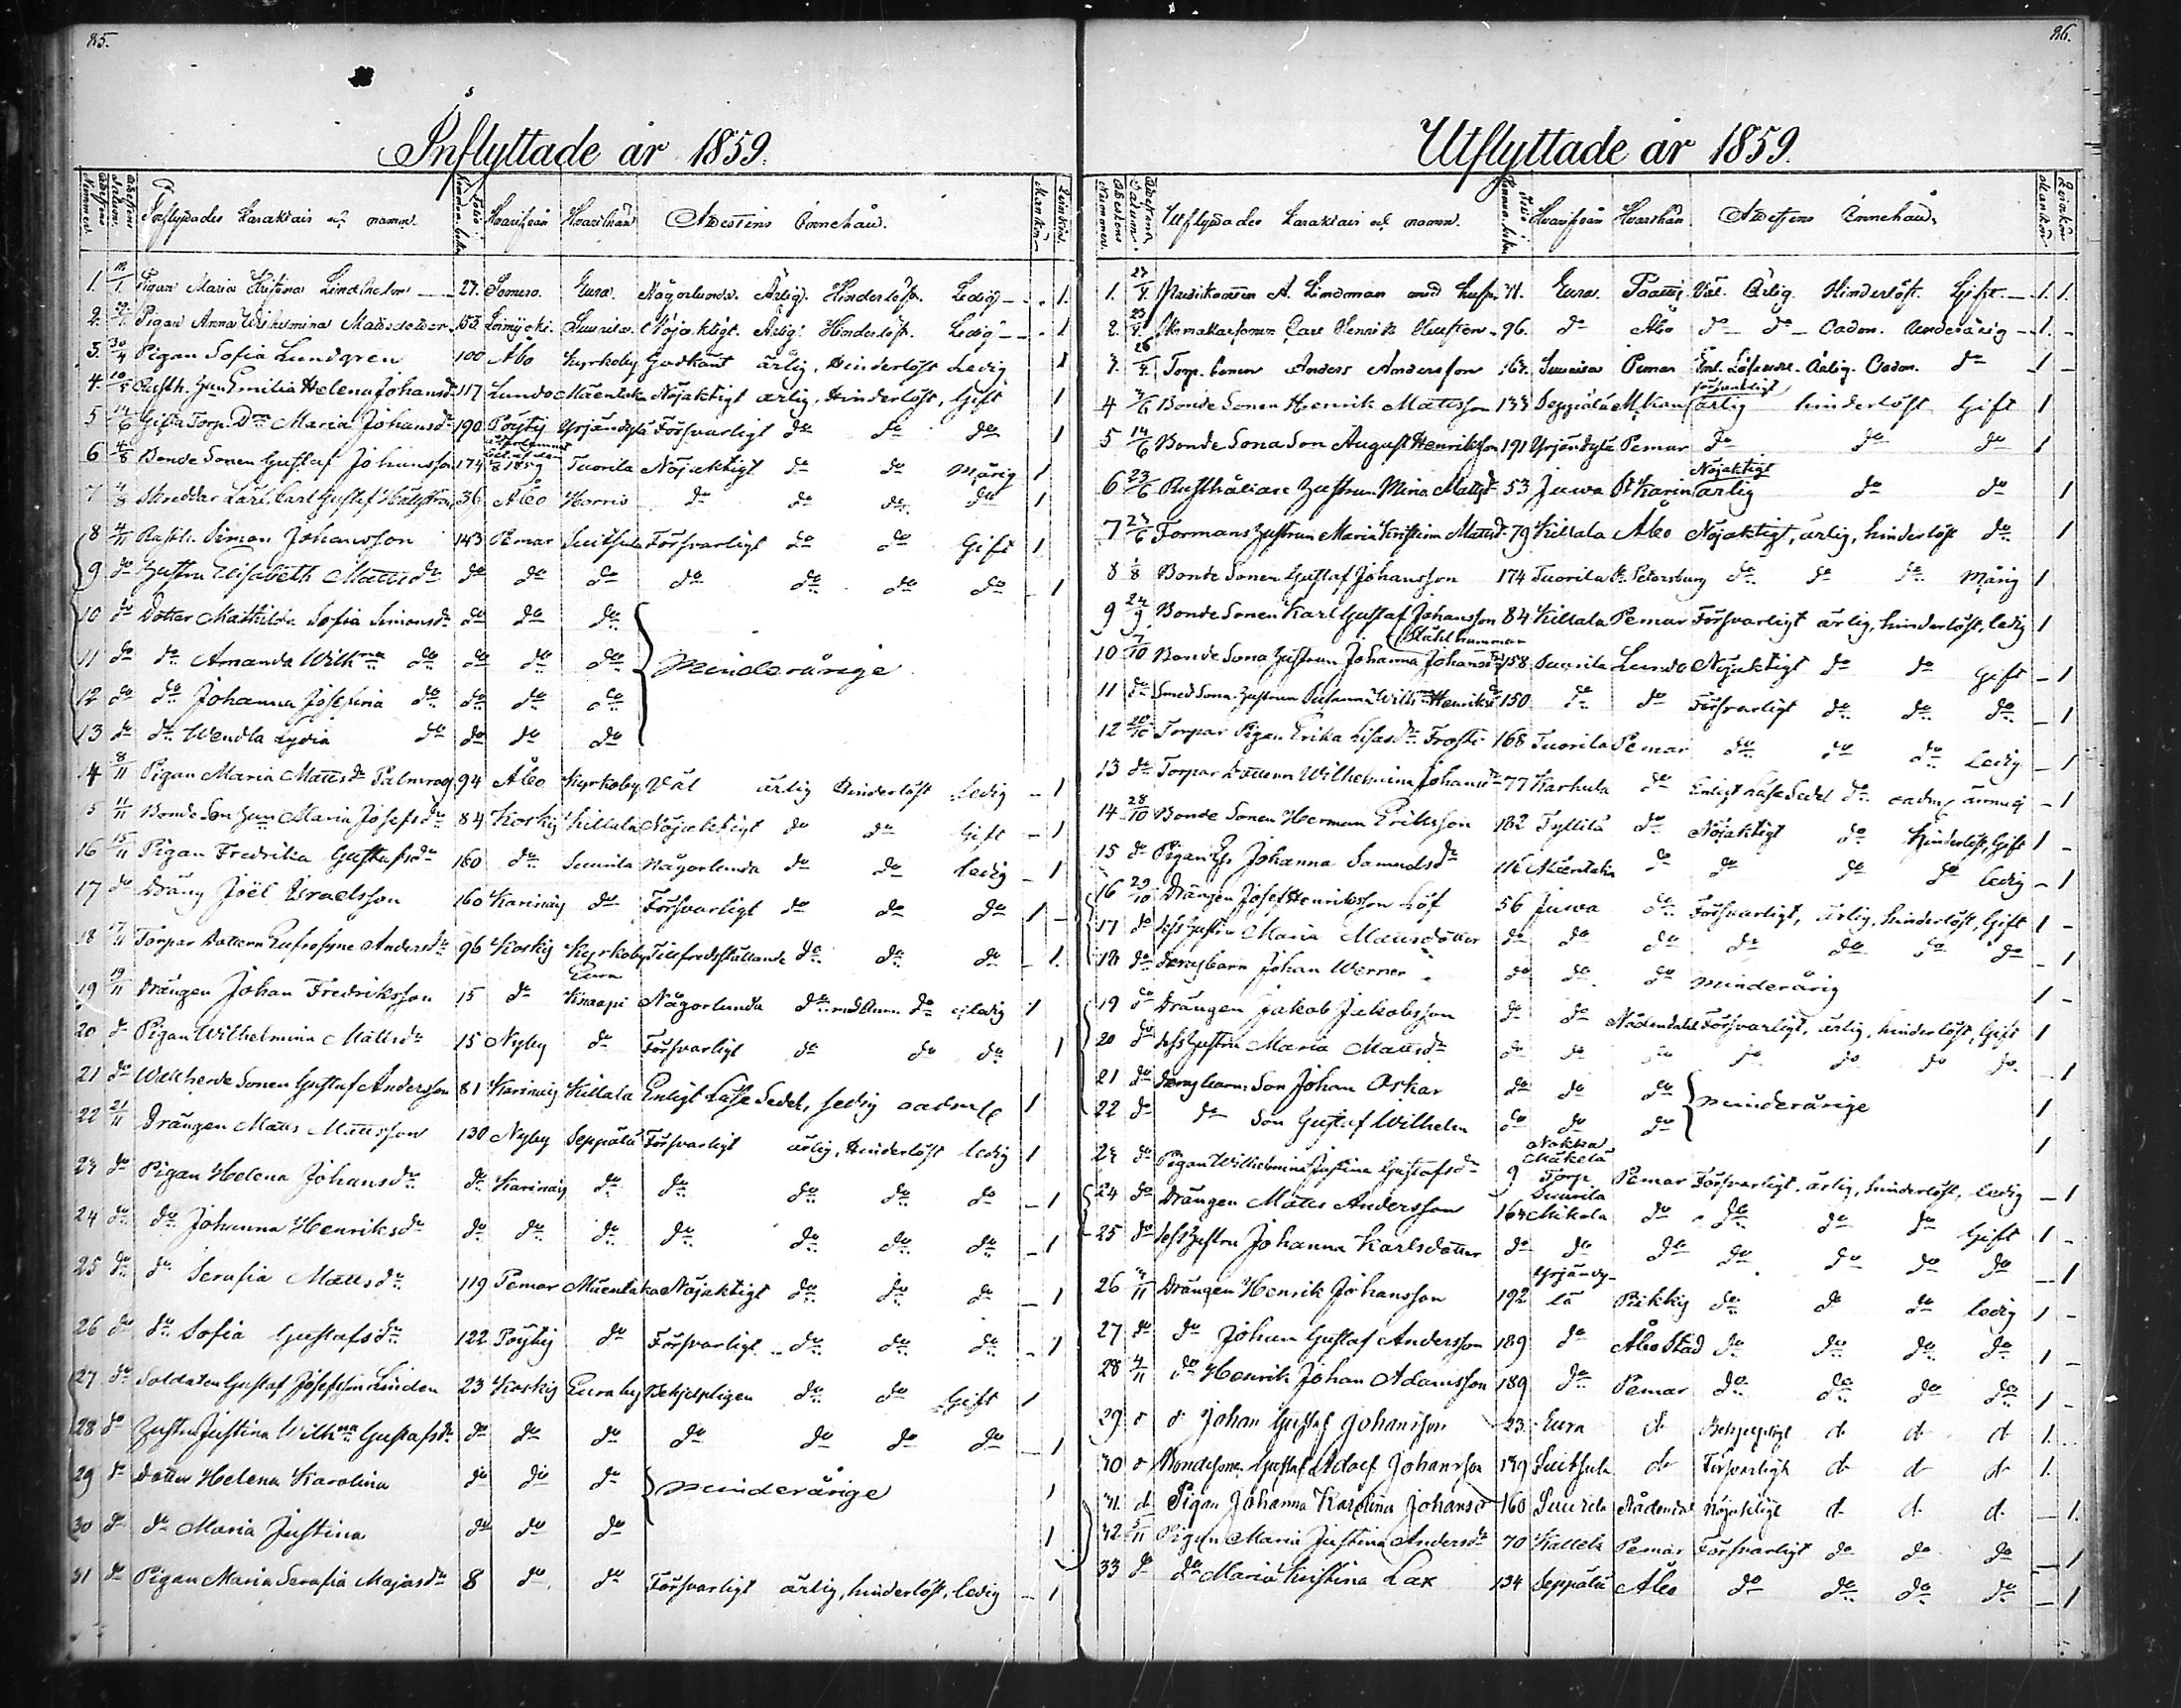 85.
Inflyttade år 1859.
Attestens Nummer.
Attestens Datum.
Inflyttades Karakter och namn.
Hvarifrån
Hvarthän
Attestens Innehåll.
Mankön
Qvinkön.
1. Pigan Maria Kristina Lindholm 27. Somero. Eura. Någorlunda. Ärlig. Hinderlöst. Ledig 1.
2. Pigan Anna Wilhelmina Mattsdotter 153. Suurila. Nöjaktigt. Ärlig. Hinderlöst. Ledig 1
3. 30/4 Pigan Sofia Lundgren 100 Åbo Kyrkoby Godkänt ärlig, hinderlöst Ledig 1
4 10/5 Emilia Helena Johansdr 117 Lundo Mäentaka Nöjaktigt ärlig, hinderlöst, Gift 1
5 14/6 Gifta Torp. Maria Johansdr 190 Pöytis Yrjänkylä Försvarligt do do do 1
6 4/8 Bonde Sonen Gustaf Johansson 174 1859 Tuorila Nöjaktigt do do Mårig 1
7 4/8 Skreddar Lärl. Carl Gustaf 36 Åbo Horris do do do do 1
8 4/11 Rusth. Simon Johansson 143 Pemar Suitsula Försvarligt do do Gift 1
9 do Hustru Elisabeth Mattsdr do do do do do do do 1
10 do Dotter Mathilda Sofia Simonsdr do do do
11 do do Amanda Wilhna do do do do Minderårige
12 do do Johanna Josefina do do do do
13 do do Wendla Lydia do do do do
14 8/11 Pigan Maria Mattsdr Palmroos 94 Åbo Kyrkoby Väl ärlig hinderlöst Ledig 1
5 11/11 Bonde Son Maria Josefsdr 84 Koskis Killala Nöjaktigt do do Gift 1
16 15/11 Pigan Fredrika Gustafsdr 160 do Suurila Någorlunda do do ledig 1
17 do Dräng Joël Israelsson 160 Karinais do Försvarligt do do do 1
18 17/11 Torpar Dottern Eufrosyne Andersdr 96 Koskis Kyrkoby Tillfredsställande do do do 1.
19 19/11 Drängen Johan Fredriksson 15 do Eura Knaapi Någorlunda do do ledig 1
20 do Pigan Wilhelmina Mattsdr 15 Nyby do Försvarligt do do do 1
21 do Wallherde Sonen Gustaf Andersson 81 Karinais Killala Enligt Läse Sedel, ledig oadm 1
22 21/11 Drängen Matts Mattsson 130 Nyby Seppälä Försvarligt ärlig, hinderlöst ledig 1
23 do Pigan Helena Johansdr do Karinais do do do do do 1
24 do do Johanna Henriksdr do do do do do do do 1
25 do do Serafia Mattsdr 119 Pemar Mäentaka Nöjaktigt do do do 1
26 do do Sofia Gustafsdr 122 Pöytis do Försvarligt do do do 1
27 do Soldaten Gustaf Josefsson Linden 23 Koskis Euraby Beskedligen do do Gift 1
28 do Hustru Justina Wilhna Gustafsdr do do do do do do do 1
29 do Dotter Helena Karolina do do do minderårige 1
30 do do Maria Justina do do do 1
31 do Pigan Maria Serafia Majasdr 8 do do Försvarligt ärlig, hinderlöst, ledig 1
86.
Utflyttade år 1859.
Attestens Nummer.
Attestens Datum.
Utflyttades Karakter och namn.
Hvarifrån
Hvarthän
Attestens Innehåll.
Mankön
Qvinkön
1. A. Lindman med hustru 71. Eura. Paattis. Väl. Ärlig. Hinderlöst. Gift 1. 1.
2. Carl Henrik 96. do Åbo do do Oadm. Underårig 1.
3. Torp. Sonen Anders Andersson 167. Suurila Pemar Enl. Läsesedel. Ärlig. Oadm. do 1
4 3/6 Bonde Sonen Henrik Mattsson 133 Seppälä försvarligt ärlig hinderlöst Gift 1
5 14/6 Bonde Sona Son August Henriksson 191 Yrjänkylä Pemar do do do 1
6 23/6 Rusthållare Hustrun Mina Mattsdr 53 Juwa St Karin Nöjaktigt ärlig do do 1
7 Formans Hustrun Maria Kristina Mattsdr 79 Killala Åbo Nöjaktigt, ärlig, hinderlöst do 1
8 1/8 Bonde Sonen Gustaf Johansson 174 Tuorila St. Petersburg do do do Mårig 1
9 24/9 Bonde Sonen Karl Gustaf Johansson 84 Killala Pemar Försvarligt ärlig, hinderlöst, ledig 1
(Ståhlhammar
10 7/10 Bonde Sona Hustrun Johanna Johansdr 158 Suurila Lundo Nöjaktigt do do Gift 1
11 do Smed Sona Hustrun Susanna Wilhna Henriksdr 150 do do Försvarligt do do do 1
12 20/10 Torpar Pigan Erika Lisasdr Frosti 168 Tuorila Pemar do do do Ledig 1
13 do Torpar Dottern Wilhelmina Johansdr 77 Karhula do Enligt Läse Sedel do oadm 1
14 28/10 Bonde Sonen Herman Eriksson 182 Tyllilä do Nöjaktigt do hinderlöst, Gift 1
15 do Pigan Johanna Samuelsdr 116 Mäentaka do do do do ledig 1
16 29/10 Drängen Josef Henriksson Löf 56 Juwa do Försvarligt, ärlig, hinderlöst, Gift 1
17 do dess hustru Maria Mattsdotter do do do do do do do 1
18 do deras barn Johan Werner do do do minderårig 1
19 do Drängen Jakob Jakobsson do do Nådendahl Försvarligt, ärlig, hinderlöst, Gift 1
20 do dess hustru Maria Mattsdr do do do do do do do 1
21 do deras barn: Son Johan Oskar do do do minderårige 1
22 do do Son Gustaf Wilhelm do do do 1
23 do Pigan Wilhelmina Justina Gustafsdr 9 Mäkelä Torp Pemar Försvarligt, ärlig, hinderlöst, ledig 1
24 do Drängen Matts Andersson 164 Suurila Mikola do do do do Gift 1
25 do dess hustru Johanna Karlsdotter do do do do do do do 1
26 Drängen Henrik Johansson 192 Yrjänky-lä Piikkis do do do ledig 1
27 do do Johan Gustaf Andersson 189 do Åbo Stad do do do do 1
28 4/11 do Henrik Johan Adamsson 189 do Pemar do do do do 1
29 d d Johan Gustaf Johansson 23. Eura d Beskedligt d d d 1.
30 d Bondesonen Gustaf Adolf Johansson 139 Suitsula d Försvarligt d d d 1.
31. d Pigan Johanna Karolina Johansd 160 Suurila Nådendal Nöjaktigt d d d 1.
32. 5/11 Pigan Maria Justina Andersdr 70 Kallela Pemar Försvarligt do do do 1
33 do do Maria Kristina Lax 134 Seppälä Åbo do do do do 1